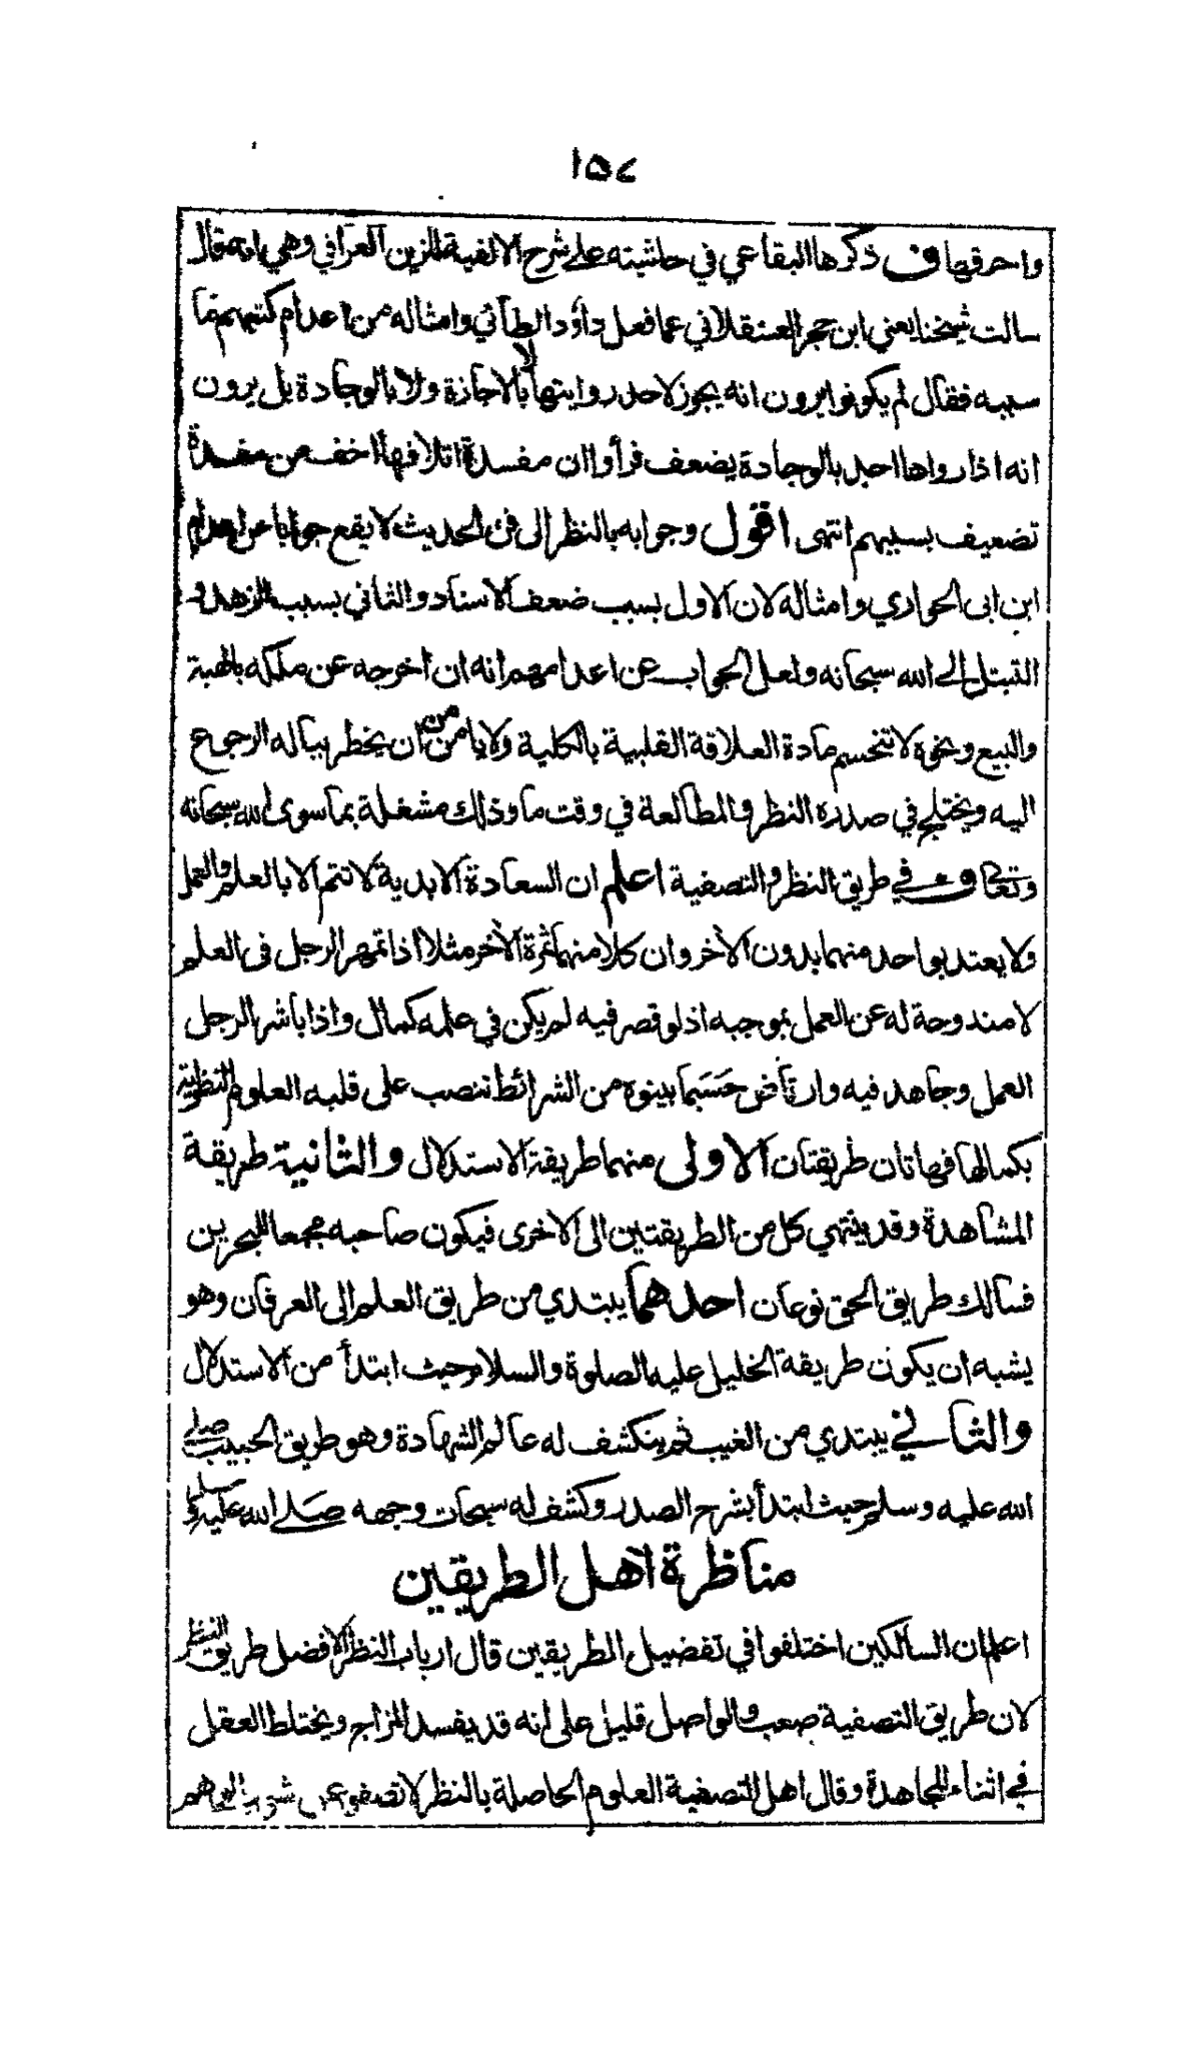 ١٥٧
واحرقها ف ذكرها البقاعي في حاشيته على شرح الالفية للزين العراقي وهي انه قال
سالت شيخنا يعني ابن حجر العسقلاني عما فعل داود الطائي وامثاله من اعدام كتبهم ما
سببه فقال لم يكونوا يرون انه يجوز لاحد روايتها لا بالاجازة ولا بالوجادة بل يرون
انه اذا رواها احد بالوجادة يضعف فرأوا ان مفسدة اتلافها اخف من مفسدة
تضعيف بسببهم انتهى اقول وجوابه بالنظر الى فن الحديث لا يقع جوابا عن اعدام
ابن ابى الحواري وامثاله لان الاول بسبب ضعف الاسناد والثاني بسبب الزهد و
التبتل الى الله سبحانه ولعل الجواب عن اعدامهم انه ان اخرجه عن ملكه بالهبة
والبيع ونحوه لا تنحسم مادة العلاقة القلبية بالكلية ولا يامن من ان يخطر بباله الرجوع
اليه ويختلج في صدره النظر والمطالعة في وقت ما وذلك مشغلة بما سوى الله سبحانه
وتعالى ف في طريق النظر والتصفية اعلم ان السعادة الابدية لا تتم الا بالعلم والعمل
ولا يعتد بواحد منهما بدون الآخر وان كلا منهما ثمرة الآخر مثلا اذا تمهر الرجل في العلم
لا مندوحة له عن العمل بموجبه اذ لو قصر فيه لم يكن في علمه كمال واذا باشر الرجل
العمل وجاهد فيه وارتاض حسبما بينوه من الشرائط تنصب على قلبه العلوم النظرية
بكمالها فهاتان طريقتان الاولى منهما طريقة الاستدلال والثانية طريقة
المشاهدة وقد ينتهي كل من الطريقتين الى الاخرى فيكون صاحبه مجمعا للبحرين
فسالك طريق الحق نوعان احدهما يبتدي من طريق العلم الى العرفان وهو
يشبه ان يكون طريقة الخليل عليه الصلوة والسلام حيث ابتدأ من الاستدلال
والثاني يبتدي من الغيب ثم ينكشف له عالم الشهادة وهو طريق الحبيب صلى
الله عليه وسلم حيث ابتدأ بشرح الصدر وكشف له سبحات وجهه صلى الله عليه وسلم
مناظرة اهل الطريقين
اعلم ان السالكين اختلفوا في تفضيل الطريقين قال ارباب النظر الافضل طريق النظر
لان طريق التصفية صعب والواصل قليل على انه قد يفسد المزاج ويختلط العقل
في اثناء المجاهدة وقال اهل التصفية العلوم الحاصلة بالنظر لا تصفو عن شوب الوهم